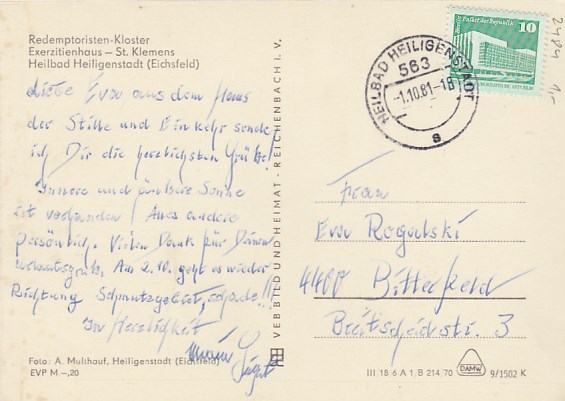 Redemptoristen-Kloster
Exerzitienhaus – St. Klemens
Heilbad Heiligenstadt (Eichsfeld)
Liebe Eva aus dem Haus
der Stille und Einkehr sende
ich Dir die herzlichsten Grüße!
Innere und äußere Sonne
ist vorhanden! Alles andere
persönlich. Vielen Dank für Deinen
Urlaubsgruß. Am 2.10. geht es wieder
Richtung Schmutzgebiet, schade!!!
In Herzlichkeit
Foto: A. Multhauf, Heiligenstadt (Eichsfeld)
EVP M –,20
VEB BILD UND HEIMAT · REICHENBACH I. V.
HEILBAD HEILIGENSTADT
563
-1.10.81-18
a
Palast der Republik
10
2484
1,-
Frau
Eva Rogalski
4400 Bitterfeld
Breitscheidstr. 3
III 18 6 A 1 B 214 70
DAMW
9/1502 K